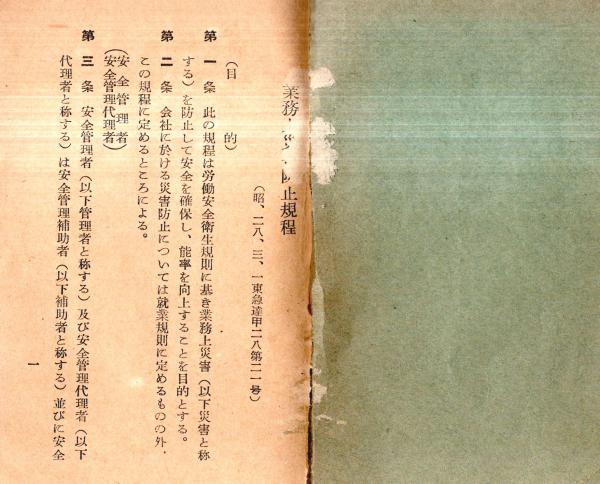 業務 防止規程
（昭、二八、三、一東急達甲二八第二一号）
（目 的）
第一条 此の規程は労働安全衛生規則に基き業務上災害（以下災害と称
する）を防止して安全を確保し、能率を向上することを目的とする。
第二条 会社に於ける災害防止については就業規則に定めるものの外、
この規程に定めるところによる。
（安全管理者
安全管理代理者）
第三条 安全管理者（以下管理者と称する）及び安全管理代理者（以下
代理者と称する）は安全管理補助者（以下補助者と称する）並びに安全
一